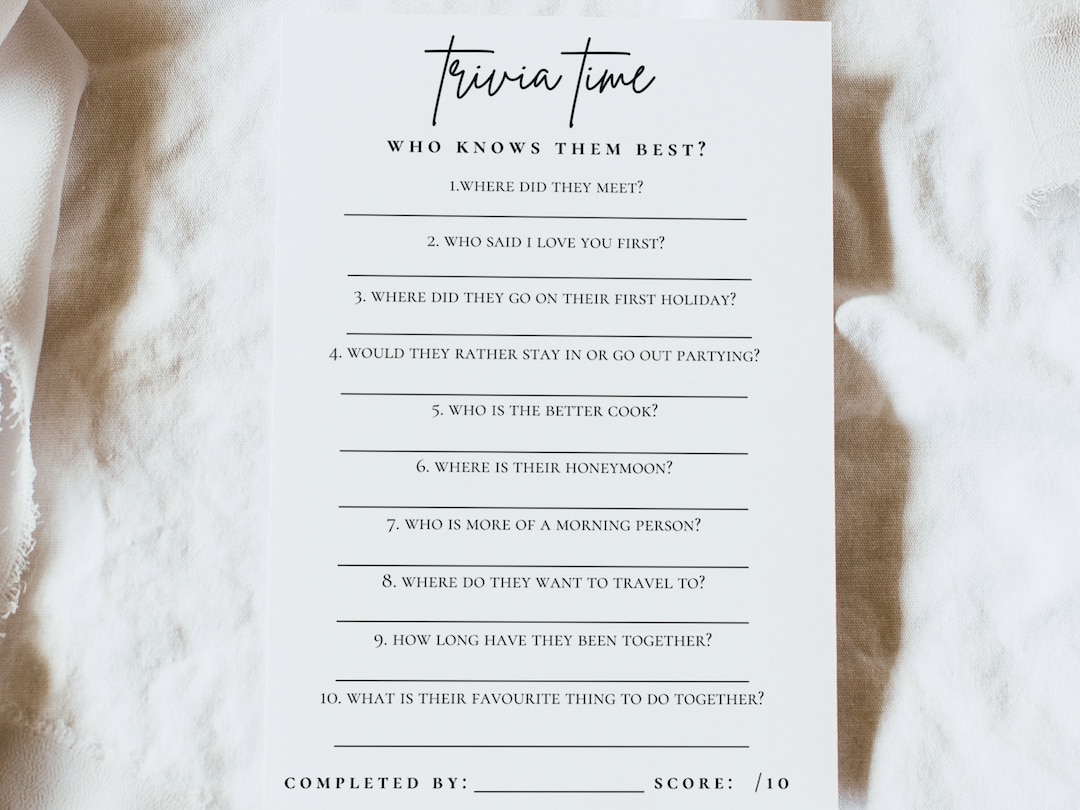 trivia time
WHO KNOWS THEM BEST?
1.WHERE DID THEY MEET?
2. WHO SAID I LOVE YOU FIRST?
3. WHERE DID THEY GO ON THEIR FIRST HOLIDAY?
4. WOULD THEY RATHER STAY IN OR GO OUT PARTYING?
5. WHO IS THE BETTER COOK?
6. WHERE IS THEIR HONEYMOON?
7. WHO IS MORE OF A MORNING PERSON?
8. WHERE DO THEY WANT TO TRAVEL TO?
9. HOW LONG HAVE THEY BEEN TOGETHER?
10. WHAT IS THEIR FAVOURITE THING TO DO TOGETHER?
COMPLETED BY: SCORE: /10